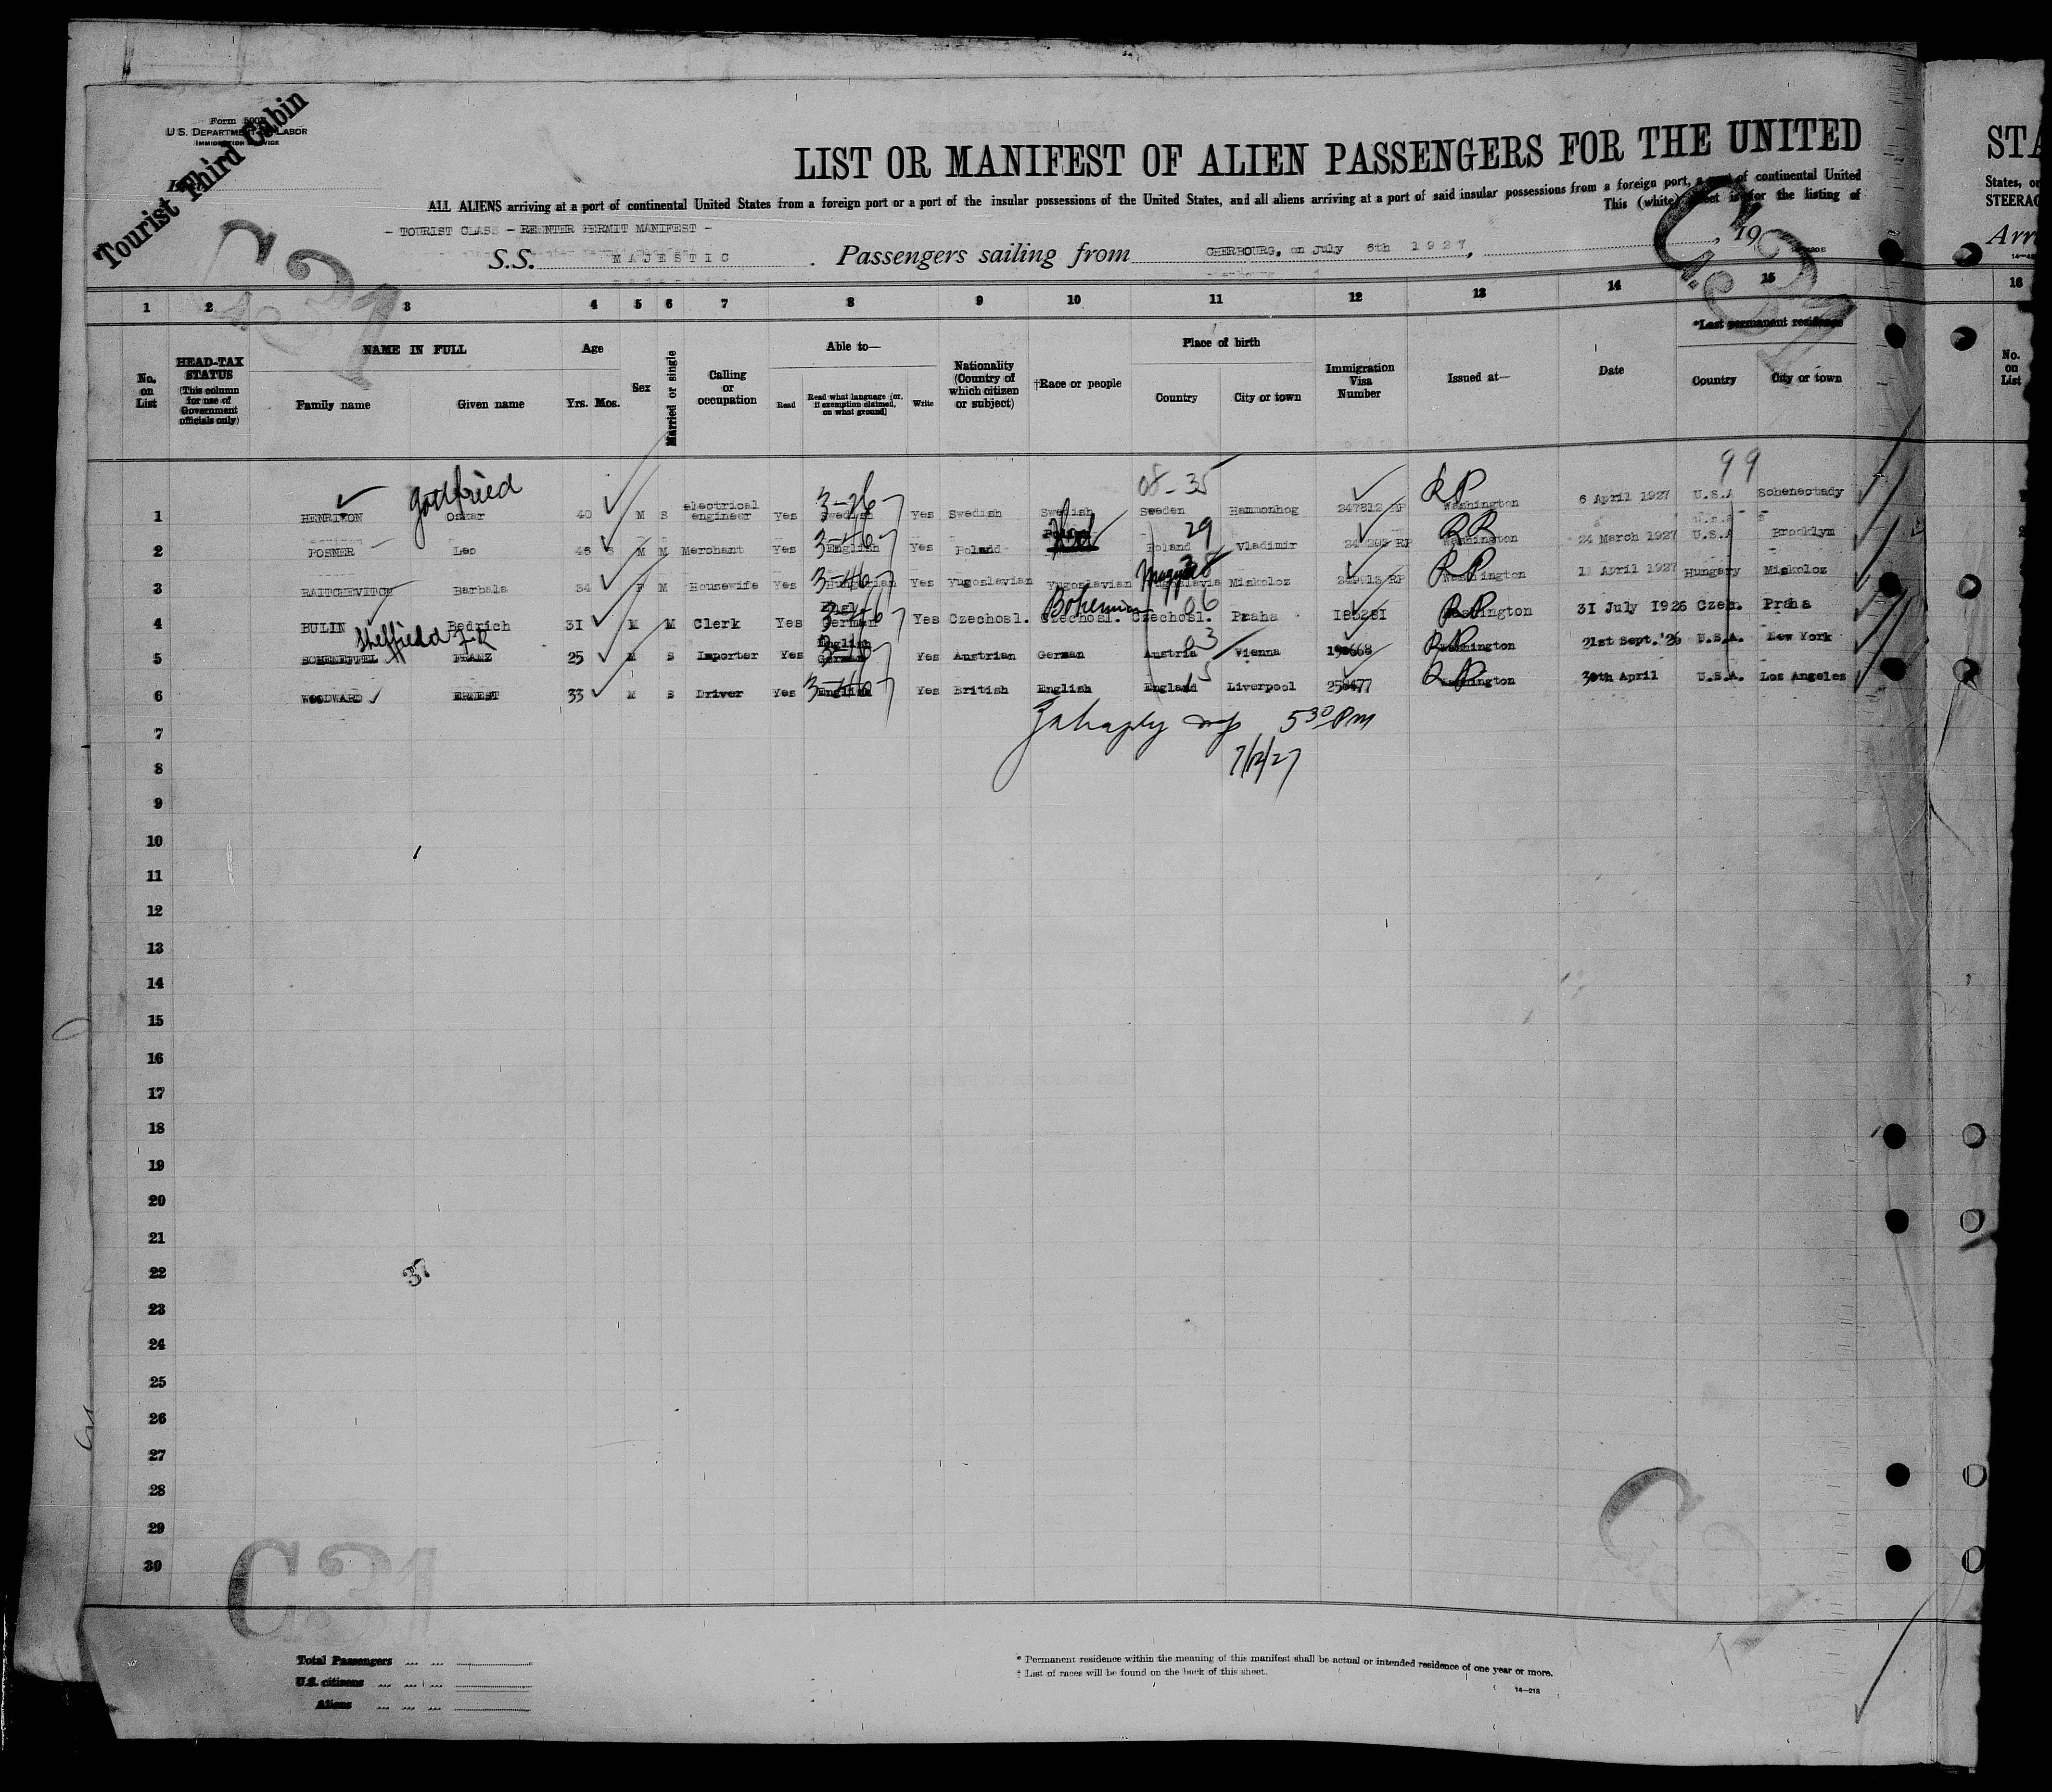 Tourist Third Cabin
Form 500B
U.S. DEPARTMENT OF LABOR
IMMIGRATION SERVICE
LIST OR MANIFEST OF ALIEN PASSENGERS FOR THE UNITED
STA
ALL ALIENS arriving at a port of continental United States from a foreign port or a port of the insular possessions of the United States, and all aliens arriving at a port of said insular possessions from a foreign port, a port of continental United
States, or
This (white) sheet is for the listing of
STEERAG
- TOURIST CLASS - REENTER PERMIT MANIFEST -
S.S. MAJESTIC. Passengers sailing from CHERBOURG, on July 6th 1927, , 19
Arri
C31
C31
1 2 3 4 5 6 7 8 9 10 11 12 13 14 15 16
No. on List
HEAD-TAX STATUS (This column for use of Government officials only)
NAME IN FULL
Family name Given name
Age
Yrs. Mos.
Sex
Married or single
Calling or occupation
Able to—
Read
Read what language [or, if exemption claimed, on what ground]
Write
Nationality (Country of which citizen or subject)
†Race or people
Place of birth
Country City or town
Immigration Visa Number
Issued at—
Date
*Last permanent residence
Country City or town
No. on List
Gottfried 3-26 08-35 RP 99
1 HENRIKON Oskar 40 M S electrical engineer Yes Swedish Yes Swedish Swedish Sweden Hammonhog 247812 RP Washington 6 April 1927 U.S.A Schenectady
2 POSNER Leo 46 M M Merchant Yes English Yes Poland Poland 29 Vladimir RP Washington 24 March 1927 U.S.A Brooklym
3 RAITCHEVITCH Barbala 34 F M Housewife Yes Hungarian Yes Yugoslavian Yugoslavian Yugoslavia Miskoloz RP Washington April 1927 Hungary Miskoloz
4 BULIN Bedrich 31 M M Clerk Yes Engl. German Yes Czechosl. Czechosl. Bohemian Czechosl. 06 Praha Washington 31 July 1926 Czech. Praha
Sheffield F.R
5 SCHENEFFEL FRANZ 25 M S Importer Yes English German Yes Austrian German Austria 03 Vienna Washington 21st Sept.'26 U.S.A. New York
6 WOODWARD ERNEST 33 M S Driver Yes English Yes British English England 15 Liverpool Washington 30th April U.S.A. Los Angeles
7 530 PM
7/12/27
8
9
10
11
12
13
14
15
16
17
18
19
20
21
22
37
23
24
25
26
27
28
29
30
C31
C31
Total Passengers
U.S. citizens
Aliens
* Permanent residence within the meaning of this manifest shall be actual or intended residence of one year or more.
† List of races will be found on the back of this sheet.
14—213